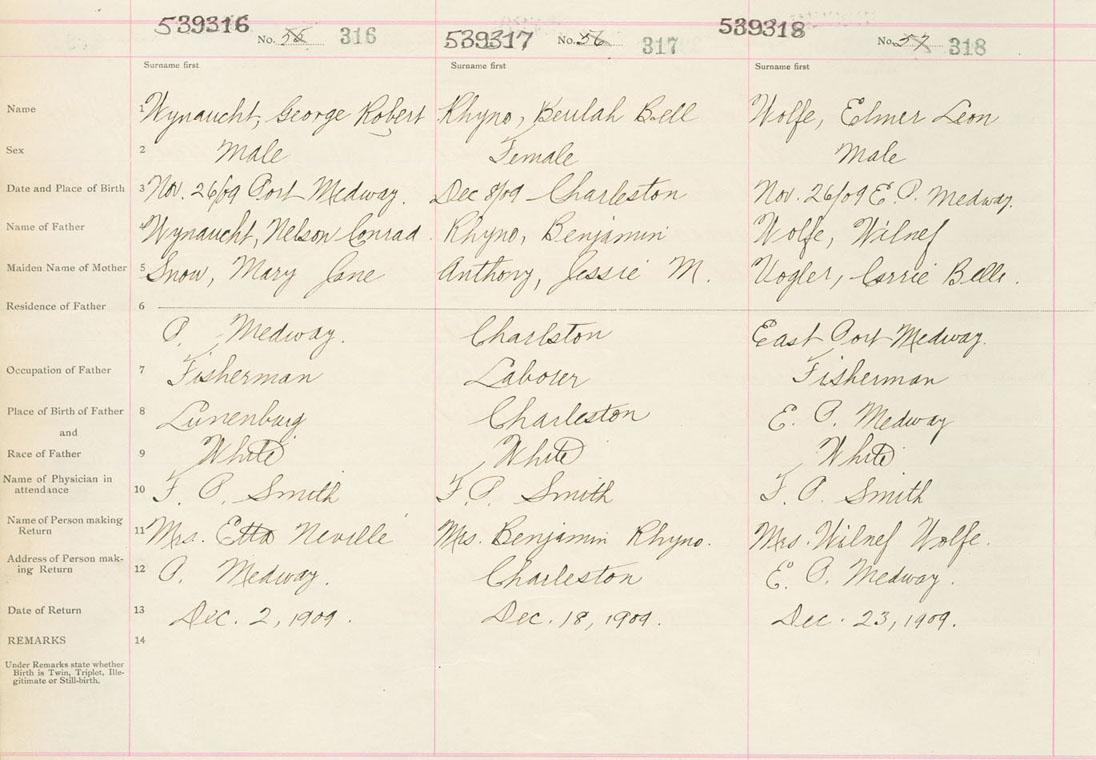 539316 No. 55 316 539317 No. 56 317 539318 No. 57 318
Surname first Surname first Surname first
Name 1 Wynaucht, George Robert Rhyno, Beulah Bell Wolfe, Elmer Leon
Sex 2 Male Female Male
Date and Place of Birth 3 Nov. 26/09 Port Medway. Dec 8/09 Charleston Nov. 26/09 E. P. Medway.
Name of Father 4 Wynaucht, Nelson Conrad Rhyno, Benjamin Wolfe, Wilnef
Maiden Name of Mother 5 Snow, Mary Jane Anthony, Jessie M. Vogler, Carrie Belle.
Residence of Father 6
P. Medway. Charlston East Port Medway.
Occupation of Father 7 Fisherman Laborer Fisherman
Place of Birth of Father 8 Lunenburg Charleston E. P. Medway
and
Race of Father 9 White White White
Name of Physician in
attendance 10 F. P. Smith F. P. Smith F. P. Smith
Name of Person making
Return 11 Mrs. Etta Neville Mrs. Benjamin Rhyno. Mrs. Wilnef Wolfe.
Address of Person mak-
ing Return 12 P. Medway. Charleston E. P. Medway.
Date of Return 13 Dec. 2, 1909. Dec. 18, 1909. Dec. 23, 1909.
REMARKS 14
Under Remarks state whether
Birth is Twin, Triplet, Ille-
gitimate or Still-birth.